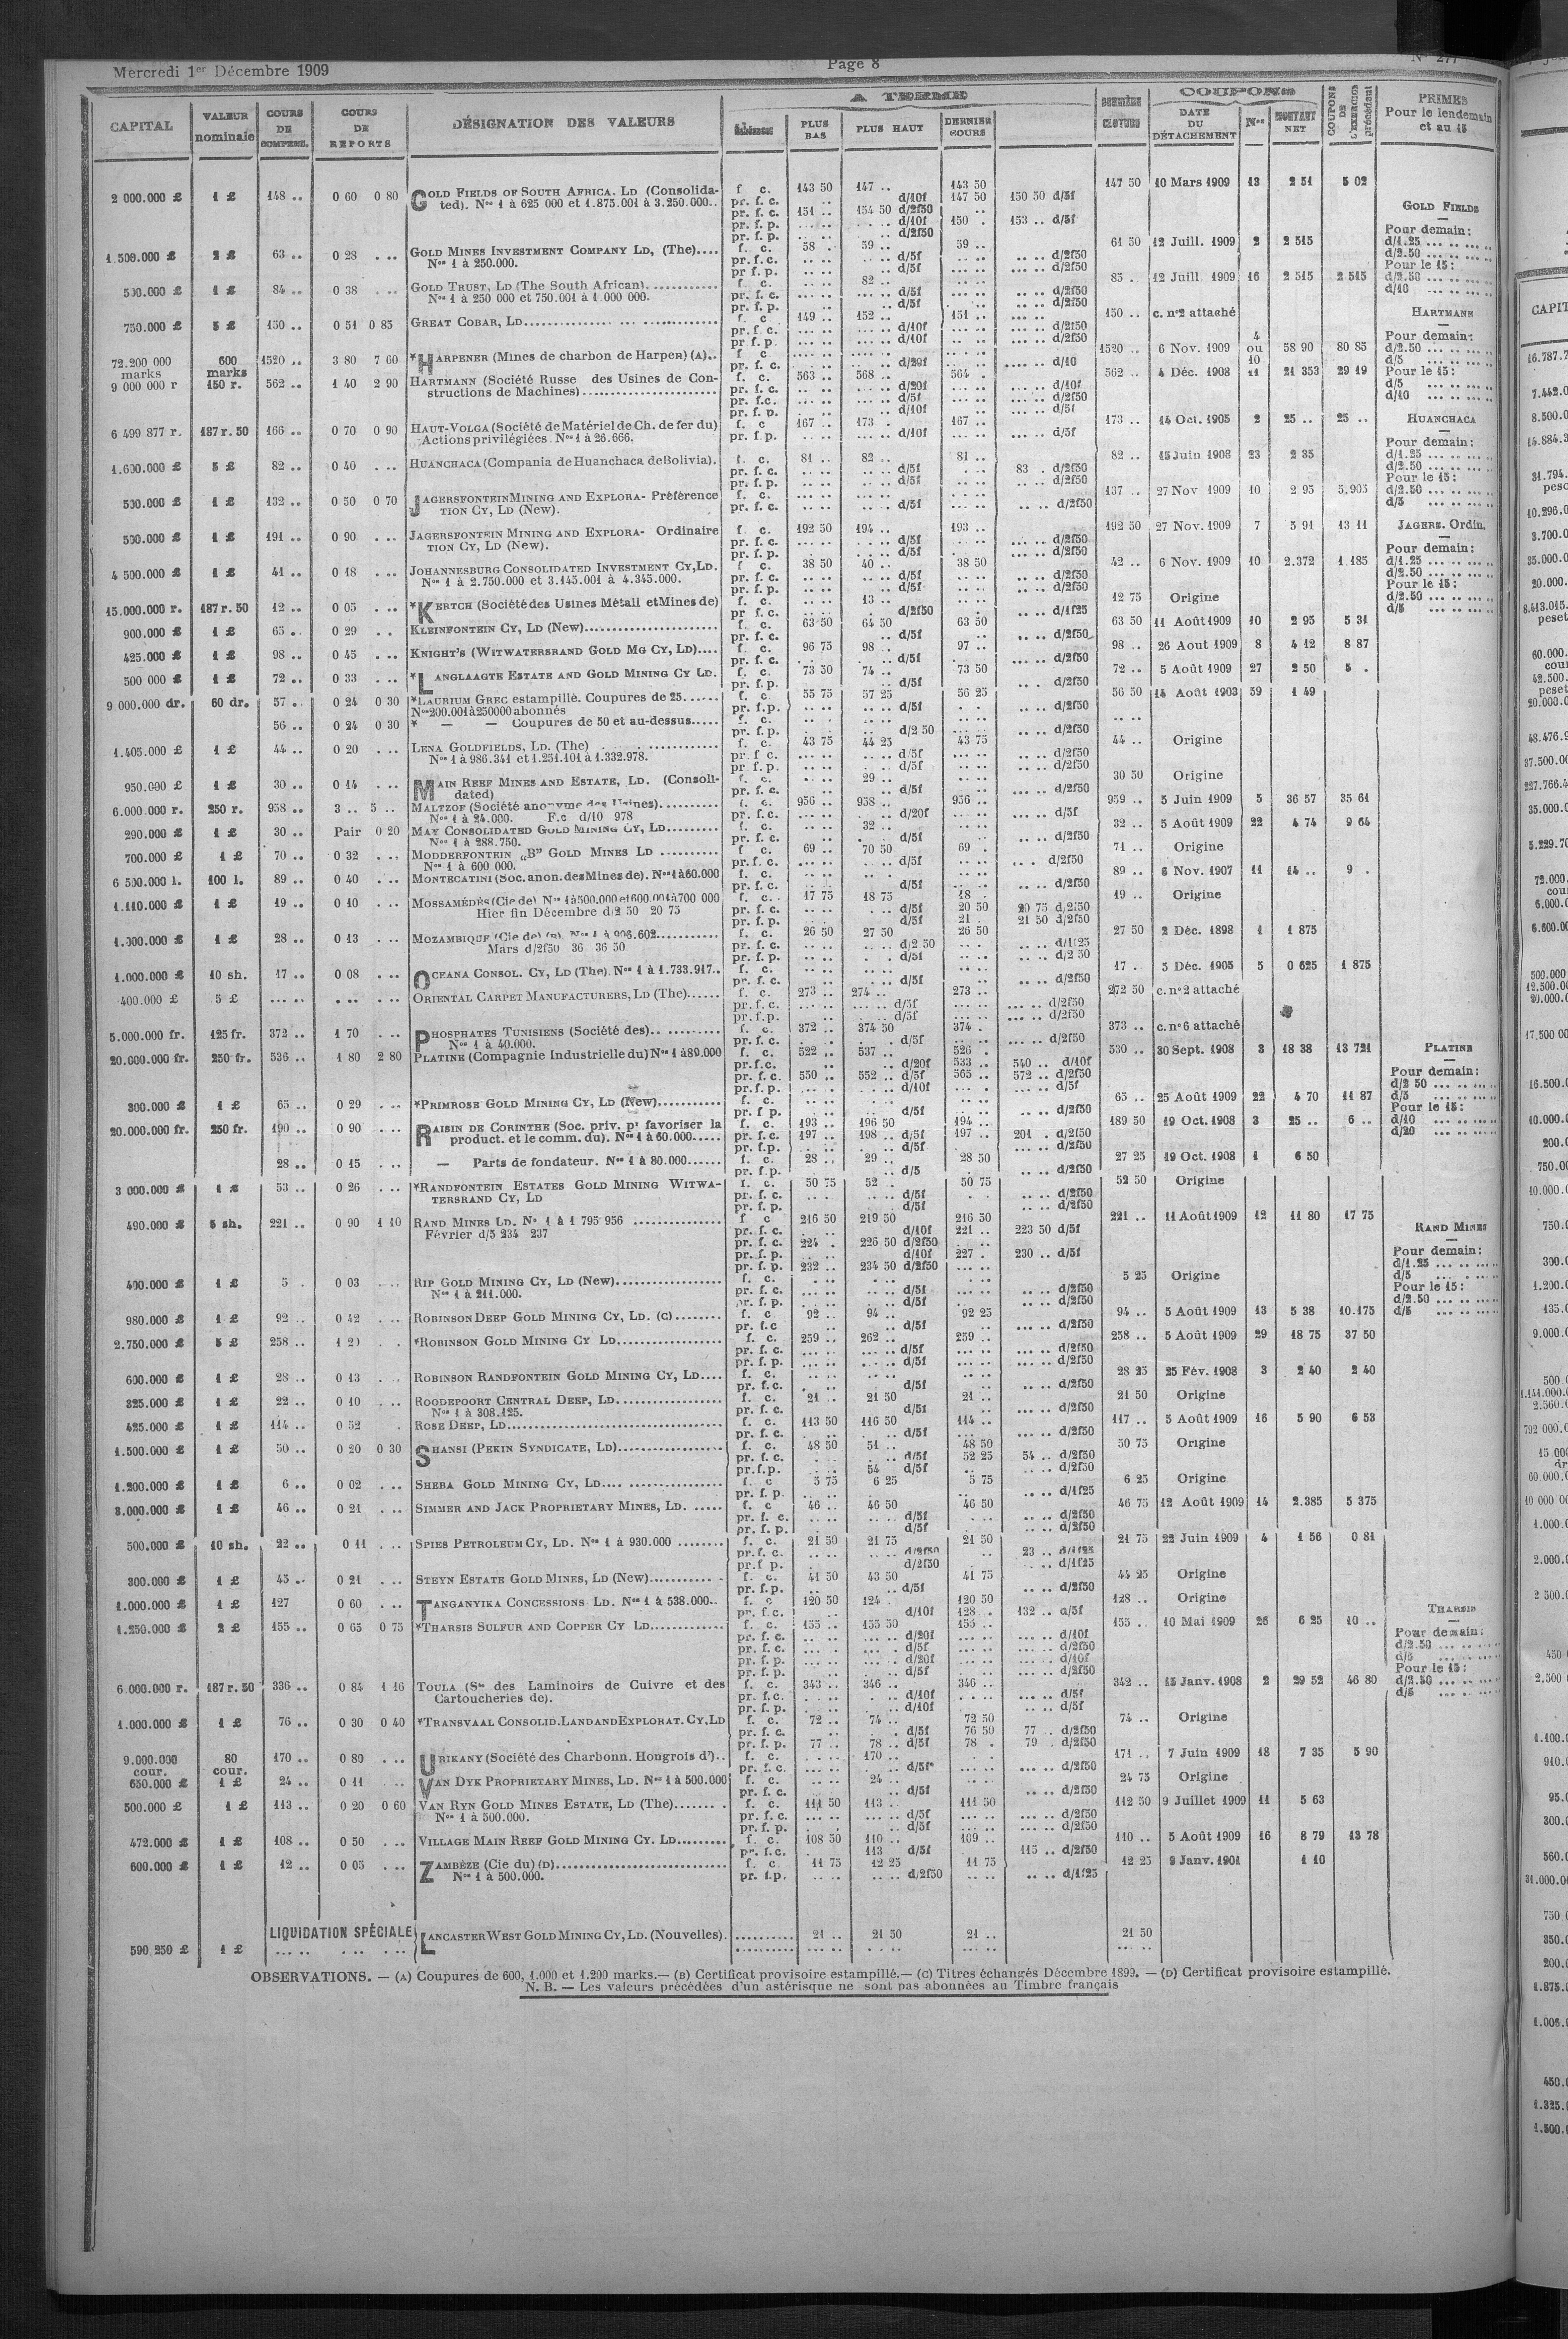 Mercredi 1er Décembre 1909
Page 8
CAPITAL VALEUR nominale COURS DE COMPENS. COURS DE REPORTS DÉSIGNATION DES VALEURS A TERME PLUS BAS PLUS HAUT DERNIER COURS DERNIÈRE CLOTURE COUPONS DATE DU DÉTACHEMENT Nos MONTANT NET COUPONS DE L'EXERCICE précédent PRIMES Pour le lendemain et au 15
2 000.000 £ 1 £ 148 .. 0 60 0 80 GOLD FIELDS OF SOUTH AFRICA. LD (Consolida- f c. 143 50 147 .. 143 50 147 50 10 Mars 1909 13 2 51 5 02
ted). Nos 1 à 625 000 et 1.875.001 à 3.250.000.. pr. f. c. .. d/10f 147 50 150 50 d/5f
pr. f. c. 151 .. 154 50 d/2f50 ..
pr. f. p. d/10f 150 . 153 .. d/5f
pr. f. p. d/2f50
1.500.000 £ 2 £ 63 .. 0 28 . .. GOLD MINES INVESTMENT COMPANY LD, (The).... f. c. 58 . 59 .. 59 .. 61 50 12 Juill. 1909 2 2 515
Nos 1 à 250.000. pr. f. c. d/5f d/2f50
pr f. p. d/5f d/2f50
500.000 £ 1 £ 84 .. 0 38 . .. GOLD TRUST, LD (The South African). f. c. 82 .. 85 . 12 Juill. 1909 16 2 515 2 515
Nos 1 à 250 000 et 750.001 à 1.000 000. pr. f. c. d/5f d/2f50
pr. f. p. d/5f d/2f50
750.000 £ 5 £ 150 .. 0 51 0 85 GREAT COBAR, LD f. c 149 .. 152 .. 151 .. 150 .. c. n°2 attaché
pr. f. c. d/10f d/2f50
pr f. p. d/10f d/2f50
72.200 000 marks 600 marks 1520 .. 3 80 7 60 *HARPENER (Mines de charbon de Harpen) (A).. f c 1520 .. 6 Nov. 1909 4 ou 10 58 90 80 85
pr. f. c. d/20f d/10
9 000 000 r 150 r. 562 .. 1 40 2 90 HARTMANN (Société Russe des Usines de Con- f. c. 563 .. 568 .. 564 . 562 .. 4 Déc. 1908 11 21 353 29 19
structions de Machines) pr. f. c. d/20f d/10f
pr. f.c. d/5f d/2f50
pr. f. p. d/10f d/5f
6 499 877 r. 187 r. 50 166 .. 0 70 0 90 HAUT-VOLGA (Société de Matériel de Ch. de fer du) f. c 167 .. 173 . 167 .. 173 .. 14 Oct. 1905 2 25 .. 25 ..
Actions privilégiées. Nos 1 à 26.666. pr. f. p. d/10f d/5f
1.600.000 £ 5 £ 82 .. 0 40 . .. HUANCHACA (Compania de Huanchaca de Bolivia). f. c. 81 .. 82 .. 81 .. 82 .. 15 Juin 1908 23 2 35
pr. f. c. d/5f 83 . d/2f50
pr. f. p. d/5f d/2f50
500.000 £ 1 £ 132 .. 0 50 0 70 JAGERSFONTEIN MINING AND EXPLORA- Préférence f. c. 137 .. 27 Nov 1909 10 2 95 5.905
TION CY, LD (New). pr. f. c. d/5f d/2f50
500.000 £ 1 £ 191 .. 0 90 . .. JAGERSFONTEIN MINING AND EXPLORA- Ordinaire f. c. 192 50 194 .. 193 .. 192 50 27 Nov. 1909 7 5 91 13 11
TION CY, LD (New). pr. f. c. d/5f d/2f50
pr. f. p. d/5f d/2f50
4 500.000 £ 1 £ 41 .. 0 18 . .. JOHANNESBURG CONSOLIDATED INVESTMENT CY, LD. f. c. 38 50 40 .. 38 50 42 .. 6 Nov. 1909 10 2.372 1 185
Nos 1 à 2.750.000 et 3.145.001 à 4.345.000. pr. f. c. d/5f d/2f50
pr. f. p. d/5f d/2f50
15.000.000 r. 187 r. 50 12 .. 0 05 . .. *KERTCH (Société des Usines Métall et Mines de) f. c. 13 .. 12 75 Origine
pr f. c. d/2f50 d/1f25
900.000 £ 1 £ 65 .. 0 29 . . KLEINFONTEIN CY, LD (New) f. c. 63 50 64 50 63 50 63 50 11 Août 1909 10 2 95 5 31
pr. f. c. d/5f d/2f50
425.000 £ 1 £ 98 .. 0 45 . .. KNIGHT'S (WITWATERSRAND GOLD MG CY, LD).... f. c. 96 75 98 .. 97 .. 98 .. 26 Aout 1909 8 4 12 8 87
pr. f. c. d/5f d/2f50
500 000 £ 1 £ 72 .. 0 33 . .. *LANGLAAGTE ESTATE AND GOLD MINING CY LD. f. c. 73 50 74 .. 73 50 72 .. 5 Août 1909 27 2 50 5 .
pr. f. p. d/5f d/2f50
9 000.000 dr. 60 dr. 57 .. 0 24 0 30 *LAURIUM GREC estampillé. Coupures de 25 f. c. 55 75 57 25 56 25 56 50 14 Août 1903 59 1 49
Nos 200.001 à 250000 abonnés pr. f.p. d/5f d/2f50
56 .. 0 24 0 30 * — — Coupures de 50 et au-dessus..... f. c.
pr. f. p. d/2 50 d/2f50
1.405.000 £ 1 £ 44 .. 0 20 . .. LENA GOLDFIELDS, LD. (The) f. c. 43 75 44 25 43 75 44 .. Origine
Nos 1 à 986.341 et 1.251.101 à 1.332.978. pr. f c. d/5f d/2f50
pr. f. p. d/5f d/2f50
950.000 £ 1 £ 30 .. 0 14 . .. MAIN REEF MINES AND ESTATE, LD. (Consoli- f. c. 29 .. 30 50 Origine
dated) pr. f. c. d/5f d/2f50
6.000.000 r. 250 r. 958 .. 3 .. 5 .. MALTZOF (Société anonyme des Usines) f. c. 956 .. 958 .. 956 .. 959 .. 5 Juin 1909 5 36 57 35 61
Nos 1 à 24.000. F.c d/10 978 pr. f. c. d/20f d/5f
290.000 £ 1 £ 30 .. Pair 0 20 MAY CONSOLIDATED GOLD MINING CY, LD f. c. 32 .. 32 .. 5 Août 1909 22 4 74 9 64
Nos 1 à 288.750. pr. f. c. d/5f d/2f50
700.000 £ 1 £ 70 .. 0 32 . .. MODDERFONTEIN „B” GOLD MINES LD f c. 69 .. 70 50 69 . 71 .. Origine
Nos 1 à 600 000. pr. f. c. d/5f d/2f50
6 500.000 l. 100 l. 89 .. 0 40 . .. MONTECATINI (Soc. anon. des Mines de). Nos 1 à 60.000 f. c. 89 .. 6 Nov. 1907 11 14 .. 9 .
pr. f. c. d/5f d/2f50
1.110.000 £ 1 £ 19 .. 0 10 . .. MOSSAMÉDÈS (Cie de) Nos 1 à 500.000 et 600.001 à 700 000 f. c. 17 75 18 75 18 . 19 .. Origine
Hier fin Décembre d/2 50 20 75 pr. f. c. d/5f 20 50 20 75 d/2f50
pr. f. p. d/5f 21 . 21 50 d/2f50
1.000.000 £ 1 £ 28 .. 0 13 . .. MOZAMBIQUE (Cie de) (B). Nos 1 à 996.602 f. c. 26 50 27 50 26 50 27 50 2 Déc. 1898 1 1 875
Mars d/2f50 36 36 50 pr. f. c. d/2 50 d/1f25
pr. f. p. d/5f d/2 50
1.000.000 £ 10 sh. 17 .. 0 08 . .. OCEANA CONSOL. CY, LD (The). Nos 1 à 1.733.917.. f. c. 17 . 5 Déc. 1905 5 0 625 1 875
pr. f. c. d/5f d/2f50
400.000 £ 5 £ ORIENTAL CARPET MANUFACTURERS, LD (The) f. c. 273 .. 274 .. 273 .. 272 50 c. n°2 attaché
pr. f. c. d/5f d/2f50
pr. f. p. d/5f d/2f50
5.000.000 fr. 125 fr. 372 .. 1 70 . .. PHOSPHATES TUNISIENS (Société des) f. c. 372 .. 374 50 374 . 373 .. c. n°6 attaché
Nos 1 à 40.000. pr. f. c. d/5f d/2f50
20.000.000 fr. 250 fr. 536 .. 1 80 2 80 PLATINE (Compagnie Industrielle du) Nos 1 à 80.000 f. c. 522 .. 537 .. 526 . 530 .. 30 Sept. 1908 3 18 38 13 721
pr.f.c. d/20f 533 .. 540 .. d/10f
pr. f. c. 550 .. 552 .. d/5f 565 .. 572 .. d/2f50
pr. f. p. d/10f d/5f
300.000 £ 1 £ 65 .. 0 29 . .. *PRIMROSE GOLD MINING CY, LD (New) f. c. 65 .. 25 Août 1909 22 4 70 11 87
pr. f p. d/5f d/2f50
20.000.000 fr. 250 fr. 190 .. 0 90 . .. RAISIN DE CORINTHE (Soc. priv. pr favoriser la f. c. 193 .. 196 50 194 .. 189 50 19 Oct. 1908 3 25 .. 6 ..
product. et le comm. du). Nos 1 à 60.000 pr. f. c. 197 .. 198 .. d/5f 197 .. 201 . d/2f50
pr. f.p. d/5f d/2f50
28 .. 0 15 . .. — Parts de fondateur. Nos 1 à 80.000 f. c. 28 .. 29 .. 28 50 27 25 19 Oct. 1908 1 6 50
pr. f.p. d/5 d/2f50
3 000.000 £ 1 £ 53 .. 0 26 . .. *RANDFONTEIN ESTATES GOLD MINING WITWA- f. c. 50 75 52 .. 50 75 52 50 Origine
TERSRAND CY, LD pr. f. c. d/5f d/2f50
pr. f. p. d/5f d/2f50
490.000 £ 5 sh. 221 .. 0 90 1 10 RAND MINES LD. N° 1 à 1 795 956 f c 216 50 219 50 216 50 221 .. 11 Août 1909 12 11 80 17 75
Février d/5 234 237 pr. f. c. d/10f 221 .. 223 50 d/5f
pr. f. c. 224 . 226 50 d/2f50
pr. f. p. d/10f 227 . 230 .. d/5f
pr. f. p. 232 .. 234 50 d/2f50
400.000 £ 1 £ 5 . 0 03 . .. RIP GOLD MINING CY, LD (New) f. c. 5 25 Origine
Nos 1 à 211.000. pr. f. c. d/5f d/2f50
pr. f. p. d/5f d/2f50
980.000 £ 1 £ 92 .. 0 42 . .. ROBINSON DEEP GOLD MINING CY, LD. (C) f. c 92 .. 94 .. 92 25 94 .. 5 Août 1909 13 5 38 10.175
pr. f.c d/5f d/2f50
2.750.000 £ 5 £ 258 .. *ROBINSON GOLD MINING CY LD f. c. 259 .. 262 .. 259 .. 258 .. 5 Août 1909 29 18 75 37 50
pr. f. c. d/5f d/2f50
pr. f. p. d/5f d/2f50
600.000 £ 1 £ 28 .. 0 13 . .. ROBINSON RANDFONTEIN GOLD MINING CY, LD.... f. c. 28 25 25 Fév. 1908 3 2 40 2 40
pr. f. c. d/5f d/2f50
325.000 £ 1 £ 22 .. 0 10 . .. ROODEPOORT CENTRAL DEEP, LD f. c. 21 .. 21 50 21 .. 21 50 Origine
Nos 1 à 308.125. pr. f. c. d/5f d/2f50
425.000 £ 1 £ 114 .. 0 52 . ROSE DEEP, LD f. c. 113 50 116 50 114 .. 117 .. 5 Août 1909 16 5 90 6 53
pr. f. c. d/5f d/2f50
1.500.000 £ 1 £ 50 .. 0 20 0 30 SHANSI (PEKIN SYNDICATE, LD) f. c. 48 50 51 .. 48 50 50 75 Origine
pr. f. c. d/5f 52 25 54 .. d/2f50
pr.f.p. 54 d/5f d/2f50
1.200.000 £ 1 £ 6 .. 0 02 . .. SHEBA GOLD MINING CY, LD f. c 5 75 6 25 5 75 6 25 Origine
pr. f. p. d/1f25
3.000.000 £ 1 £ 46 .. 0 21 . .. SIMMER AND JACK PROPRIETARY MINES, LD. f. c 46 .. 46 50 46 50 46 75 12 Août 1909 14 2.385 5 375
pr. f. c. d/5f d/2f50
pr. f. p. d/5f d/2f50
500.000 £ 10 sh. 22 .. 0 11 . .. SPIES PETROLEUM CY, LD. Nos 1 à 930.000 f. c. 21 50 21 75 21 50 21 75 22 Juin 1909 4 1 56 0 81
pr. f. c. d/2f50 23 .. d/1f25
pr.f p. d/2f50 d/1f25
300.000 £ 1 £ 45 .. 0 21 . .. STEYN ESTATE GOLD MINES, LD (New) f. c. 41 50 43 50 41 75 44 25 Origine
pr. f.p. d/5f d/2f50
1.000.000 £ 1 £ 127 0 60 . .. TANGANYIKA CONCESSIONS LD. Nos 1 à 538.000.. f. c 120 50 124 . 120 50 128 .. Origine
pr. f. c. d/10f 128 . 132 .. d/5f
1.250.000 £ 2 £ 155 .. 0 65 0 75 *THARSIS SULFUR AND COPPER CY LD f. c. 155 .. 155 50 155 .. 155 .. 10 Mai 1909 26 6 25 10 ..
pr. f. c. d/20f d/10f
pr. f. c. d/5f d/2f50
pr. f. p. d/20f d/10f
pr. f. p. d/5f d/2f50
6.000.000 r. 187 r. 50 336 .. 0 84 1 16 TOULA (Sté des Laminoirs de Cuivre et des f. c. 343 .. 346 .. 346 .. 342 .. 15 Janv. 1908 2 29 52 46 80
Cartoucheries de). pr. f.c. d/10f d/5f
pr. f. p. d/10f d/5f
1.000.000 £ 1 £ 76 .. 0 30 0 40 *TRANSVAAL CONSOLID. LAND AND EXPLORAT. CY, LD f. c. 72 .. 74 .. 72 50 74 .. Origine
pr. f. c. d/5f 76 50 77 .. d/2f50
pr. f. p. 77 .. 78 .. d/5f 78 . 79 . d/2f50
9.000.000 cour. 80 cour. 170 .. 0 80 . .. URIKANY (Société des Charbonn. Hongrois d').. f. c. 170 .. 171 .. 7 Juin 1909 18 7 35 5 90
pr. f. c. d/5f d/2f50
650.000 £ 1 £ 24 .. 0 11 . .. VAN DYK PROPRIETARY MINES, LD. Nos 1 à 500.000 f. c. 24 .. 24 75 Origine
pr. f. c. d/5f d/2f50
500.000 £ 1 £ 113 .. 0 20 0 60 VAN RYN GOLD MINES ESTATE, LD (The) f. c. 111 50 113 .. 111 50 112 50 9 Juillet 1909 11 5 63
Nos 1 à 500.000. pr. f. c. d/5f d/2f50
pr. f. p. d/5f d/2f50
472.000 £ 1 £ 108 .. 0 50 . .. VILLAGE MAIN REEF GOLD MINING CY. LD f. c 108 50 110 .. 109 .. 110 .. 5 Août 1909 16 8 79 13 78
pr. f.c. 113 d/5f 115 .. d/2f50
600.000 £ 1 £ 12 .. 0 05 . .. ZAMBÈZE (Cie du) (D) f. c. 11 75 12 25 11 75 12 25 9 Janv. 1901 1 10
Nos 1 à 500.000. pr. f.p. d/2f50 d/1f25
LIQUIDATION SPÉCIALE
590 250 £ 1 £ LANCASTER WEST GOLD MINING CY, LD. (Nouvelles). 21 .. 21 50 21 .. 21 50
GOLD FIELDS
Pour demain:
d/1.25
d/2.50
Pour le 15:
d/2.50
d/10
HARTMANN
Pour demain:
d/2.50
d/5
Pour le 15:
d/5
d/10
HUANCHACA
Pour demain:
d/1.25
d/2.50
Pour le 15:
d/2.50
d/5
JAGERS. Ordin.
Pour demain:
d/1.25
d/2.50
Pour le 15:
d/2.50
d/5
PLATINE
Pour demain:
d/2 50
d/5
Pour le 15:
d/10
d/20
RAND MINES
Pour demain:
d/1.25
d/5
Pour le 15:
d/2.50
d/5
THARSIS
Pour demain:
d/2.50
d/5
Pour le 15:
d/2.50
d/5
OBSERVATIONS. — (A) Coupures de 600, 1.000 et 1.200 marks.— (B) Certificat provisoire estampillé.— (C) Titres échangés Décembre 1899. — (D) Certificat provisoire estampillé.
N. B. — Les valeurs précédées d'un astérisque ne sont pas abonnées au Timbre français